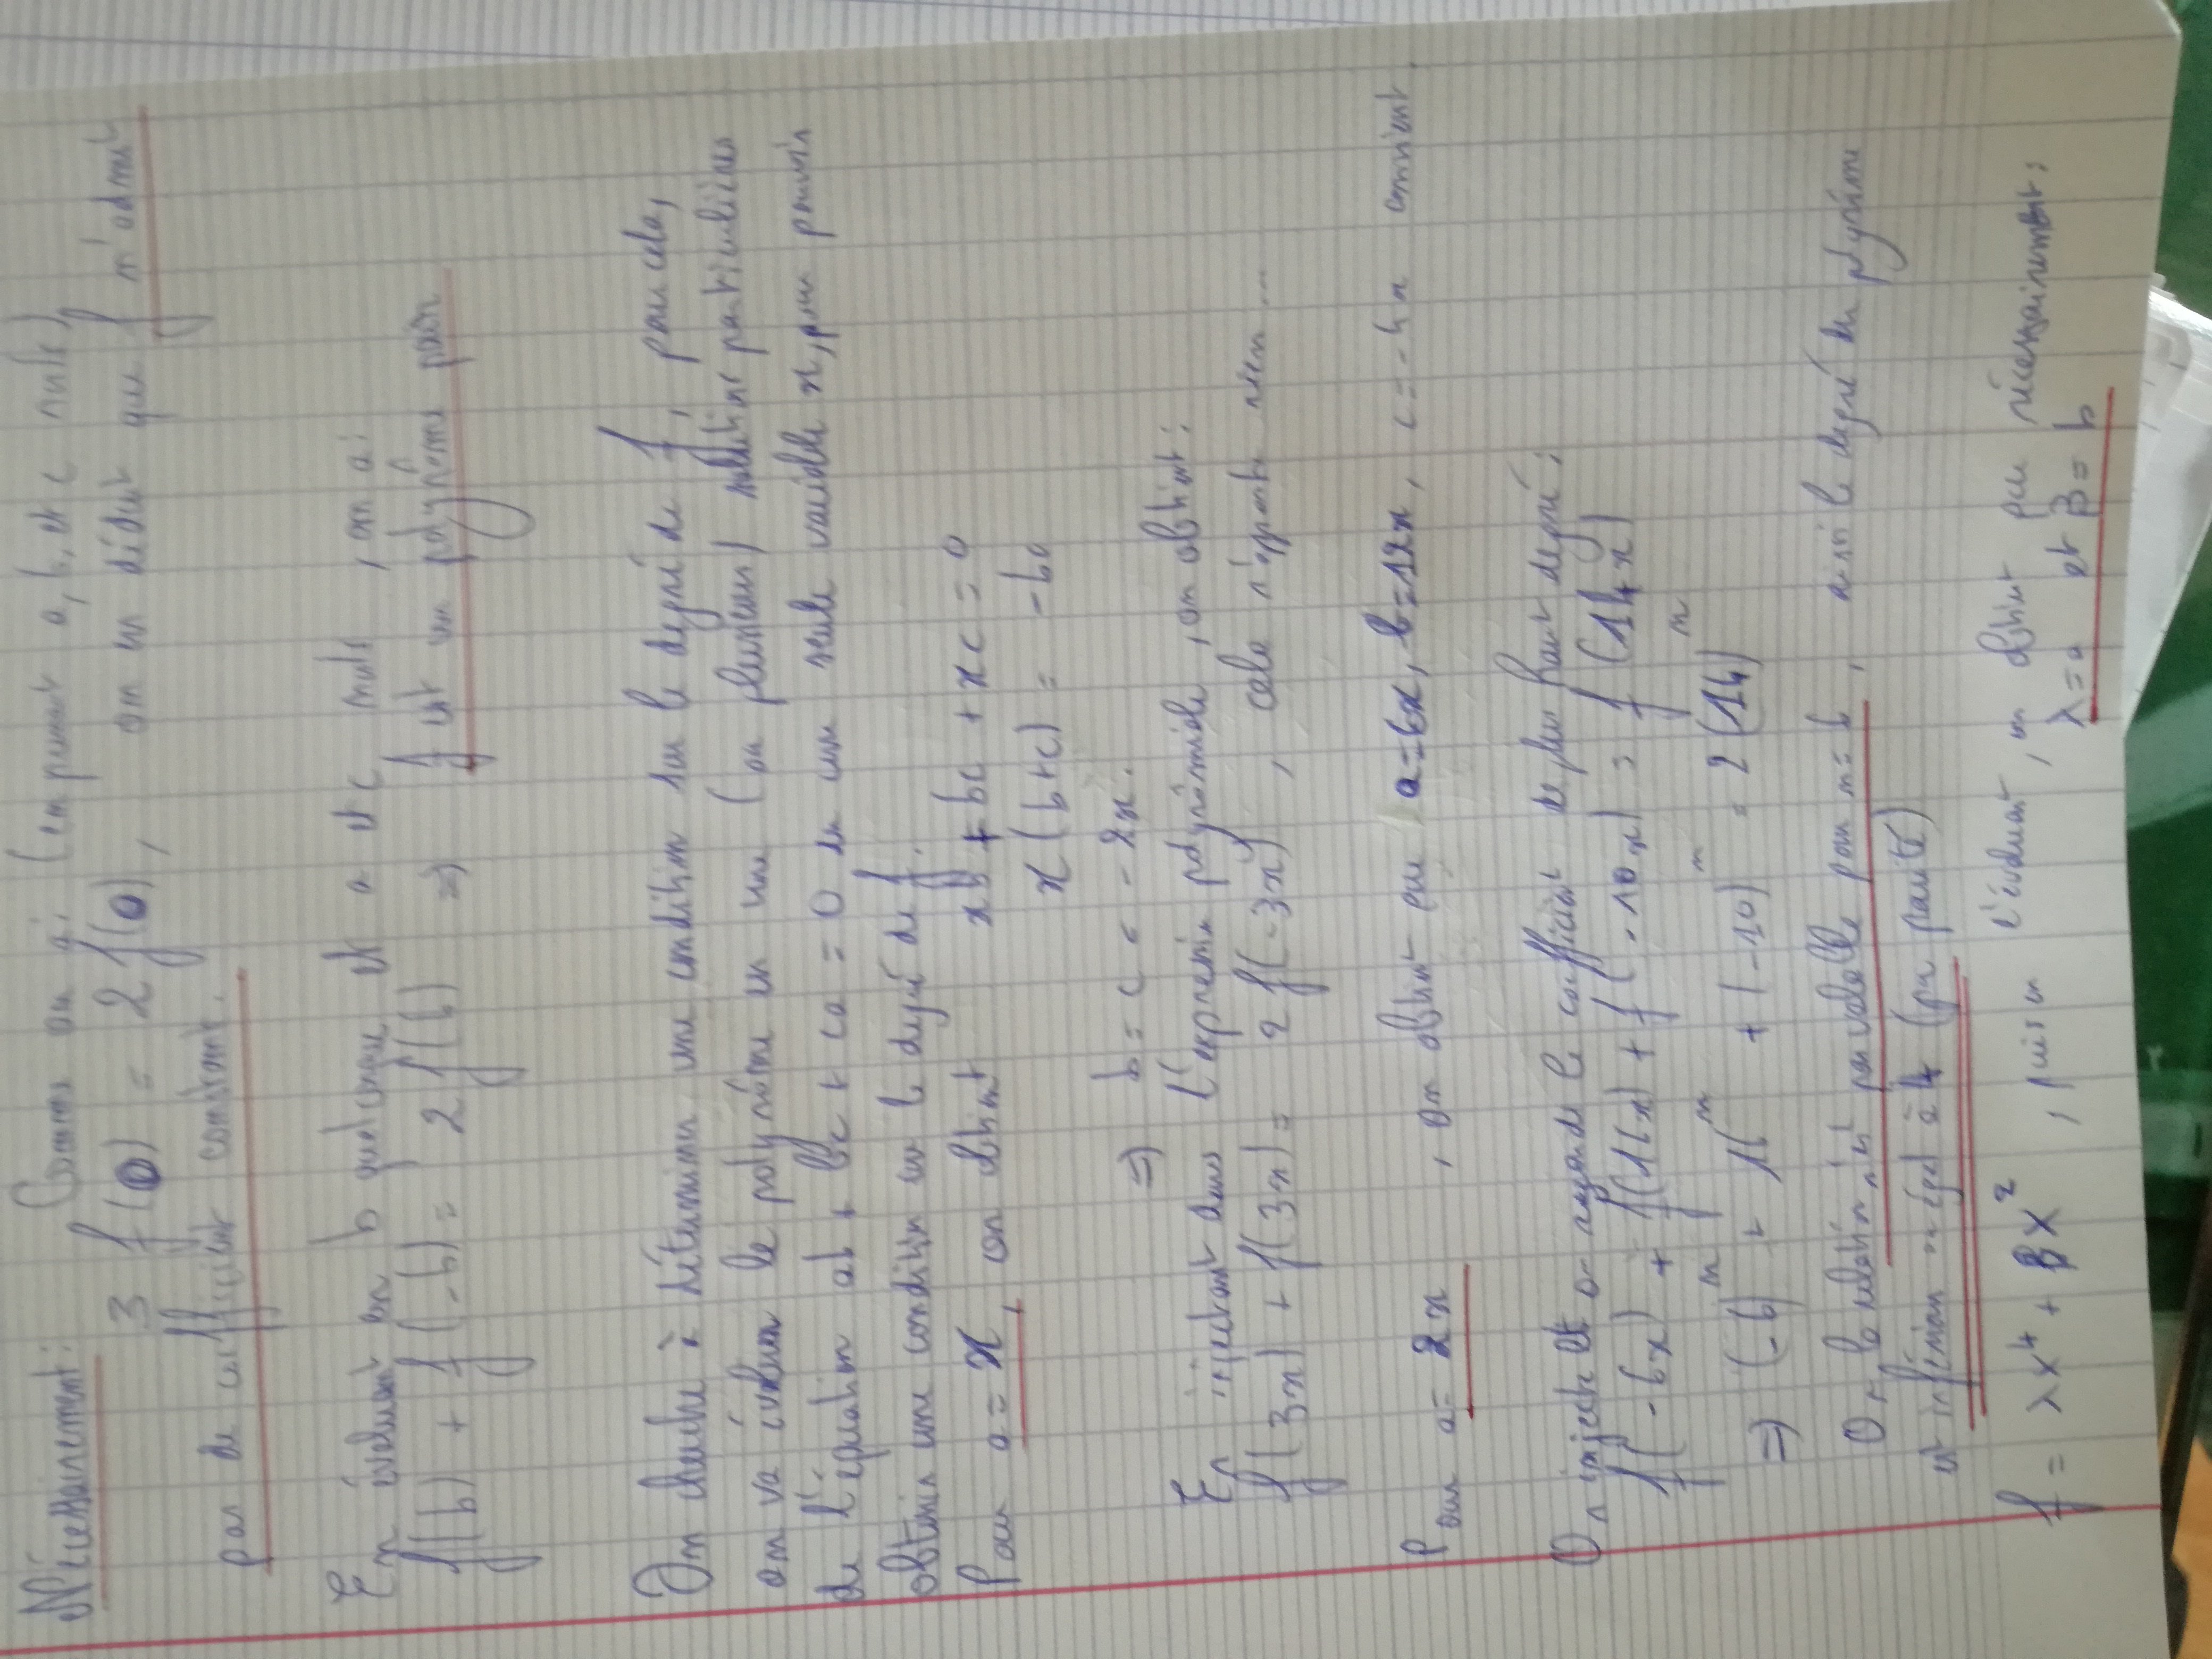 Nécessairement: Comme on a: (en prenant a, b, et c nuls)
3 f(0) = 2 f(0), on en déduit que f n'admet
pas de coefficient constant.
En évaluant en b quelconque et a et c nuls, on a:
f(b) + f(-b) = 2 f(b) => f est un polynôme pair
On cherche à déterminer une condition sur le degré de f, pour cela,
on va évaluer le polynôme en une (ou plusieurs) solutions particulières
de l'équation ab + bc + ca = 0 en une seule variable x, pour pouvoir
obtenir une condition sur le degré de f.
Pour a = x, on obtient xb + bc + xc = 0
x(b+c) = -bc
=> b = c = -2x.
En injectant dans l'expression polynômiale, on obtient:
f(3x) + f(3x) = 2 f(-3x), cela n'apporte rien...
Pour a = 2x, on obtient que a=6x, b=12x, c=-4x convient
On injecte et on regarde le coefficient de plus haut degré:
f(-6x) + f(16x) + f(-10x) = 2 f(14x)
=> (-6)^n + 16^n + (-10)^n = 2(14)^n
Or, la relation n'est pas valable pour n=6, ainsi le degré du polynôme
est inférieur ou égal à 4 (par parité)
f = λx⁴ + βX², puis en l'évaluant, on obtient que nécessairement:
λ=a et β=b